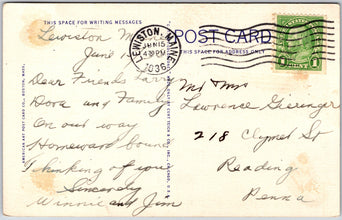 THIS SPACE FOR WRITING MESSAGES
POST CARD
THIS SPACE FOR ADDRESS ONLY
LEWISTON, MAINE
JUN 15
4 PM
1936
Lewiston
June
Dear Friends Larry
Dora and Family
On our way
Homeward bound
Thinking of you
Sincerely
Winnie and Jim
Mr Mrs
Lawrence Gieringer
218 Clymer St
Reading
Penna